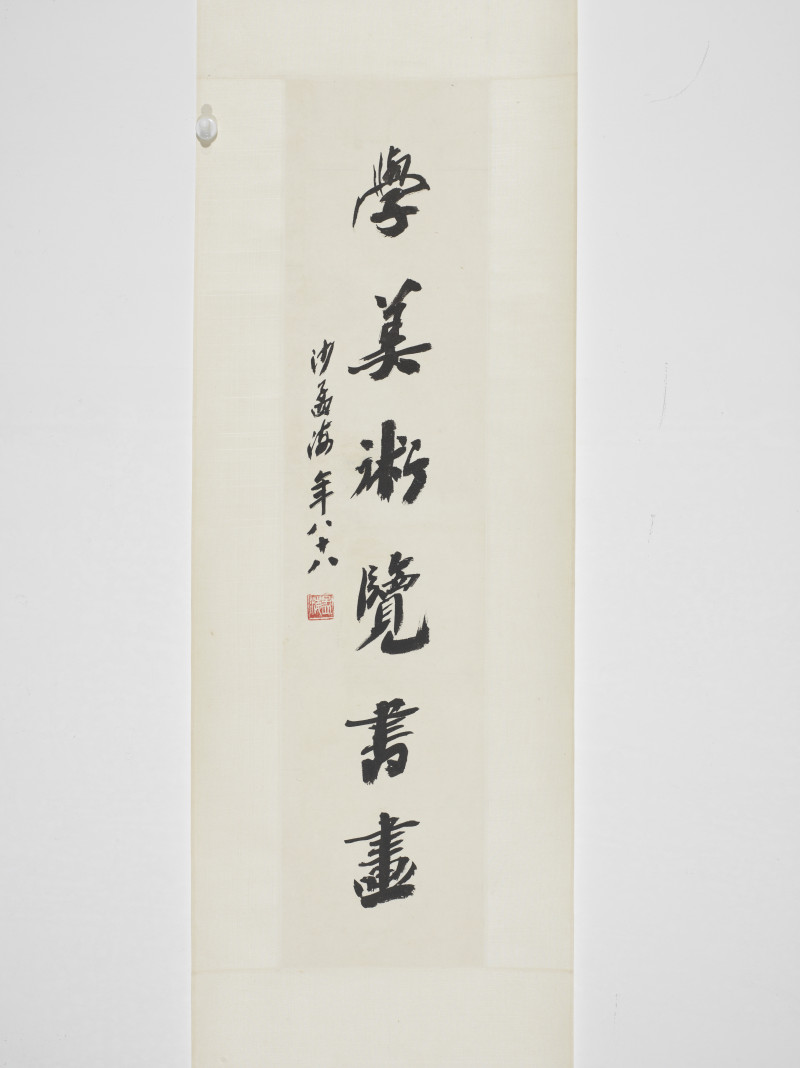 學美術覽書畫
沙孟海年八十八